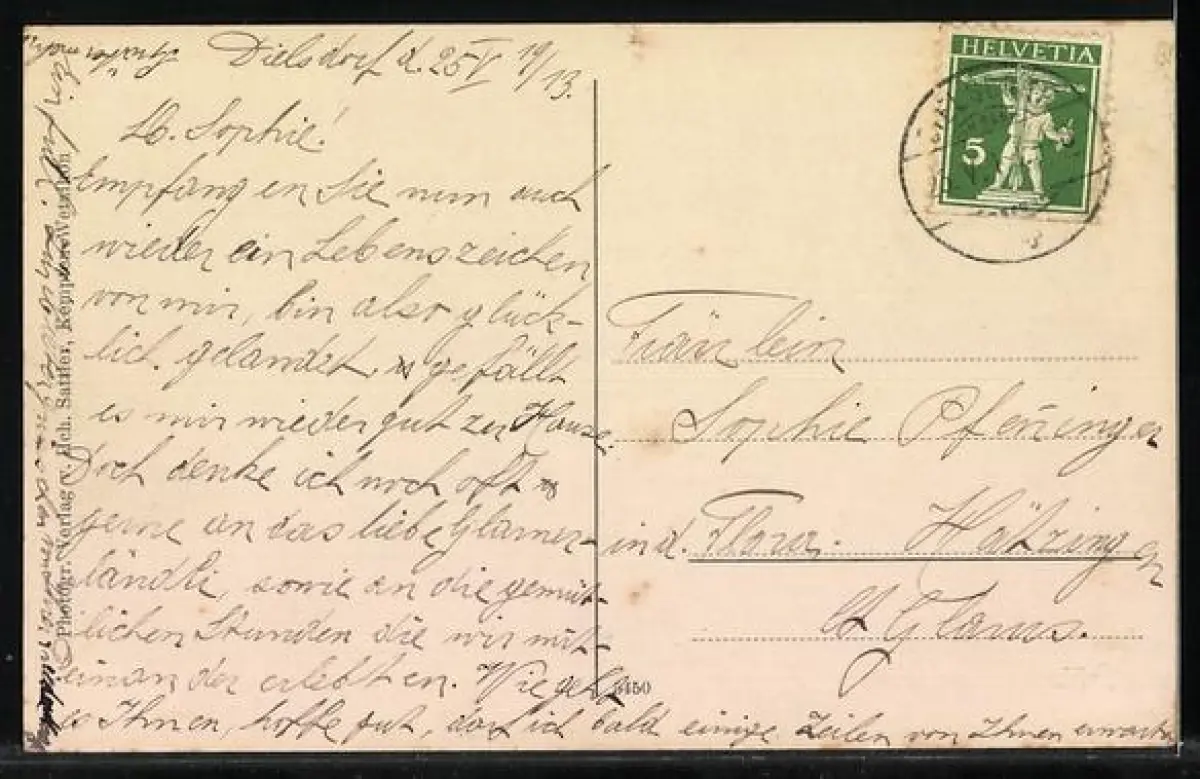 Dielsdorf d. 25 V 19/13.
Lb. Sophie!
Empfangen Sie nun auch
wieder ein Lebenszeichen
von mir, bin also glück-
lich gelandet u gefällt
es mir wieder gut zu Hause.
Doch denke ich noch oft u
gerne an das liebe Glarner-
ländli, sowie an die gemüt-
lichen Stunden die wir mit-
einander erlebten. Wie geht
es Ihnen, hoffe gut, darf ich bald einige Zeilen von Ihnen erwarten
Photogr. Verlag v. Hch. Sattler, Kempten-Wetzikon
6450
HELVETIA
5
Fräulein
Sophie Pfeninger
in d. Flora. Hätzingen
Ct Glarus.